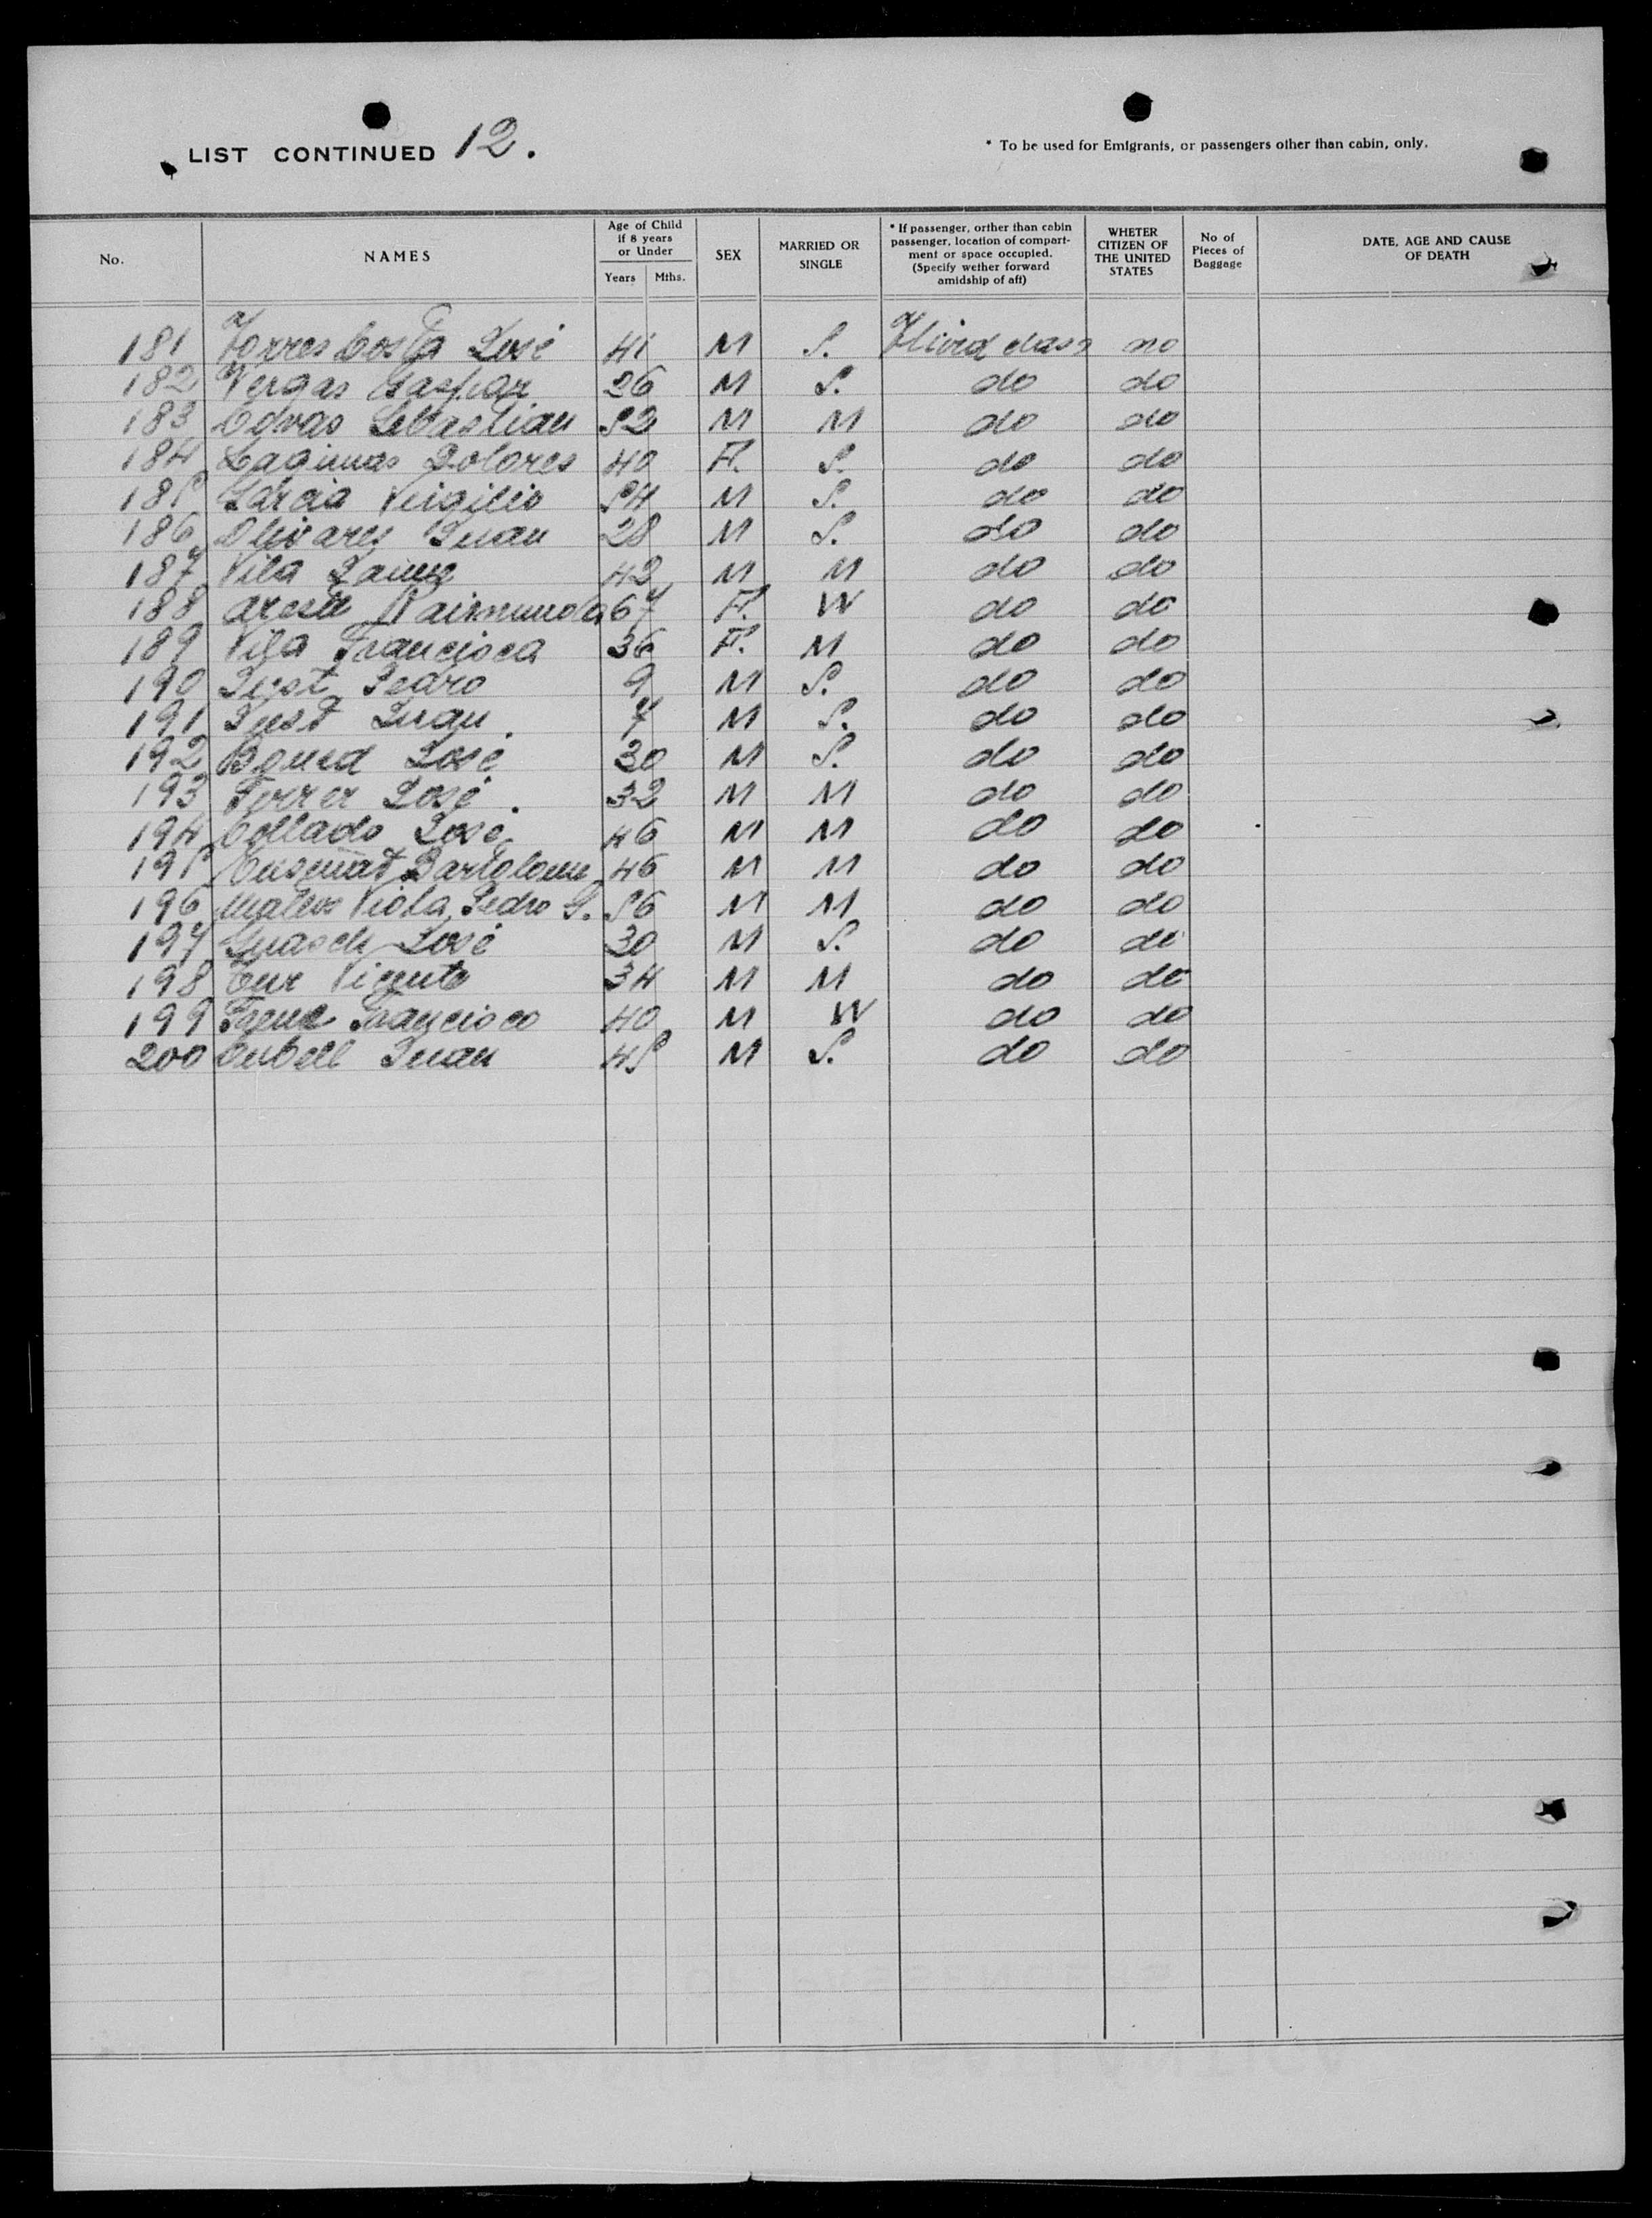 LIST CONTINUED 12.
* To be used for Emigrants, or passengers other than cabin, only.
No. NAMES Age of Child if 8 years or Under Years Mths. SEX MARRIED OR SINGLE * If passenger, orther than cabin passenger, location of compartment or space occupied. (Specify wether forward amidship of aft) WHETER CITIZEN OF THE UNITED STATES No of Pieces of Baggage DATE, AGE AND CAUSE OF DEATH
181 Torres Costa José 41 M S. Third class no
182 Vergas Gaspar 26 M S. do do
183 Covas Sebastian 52 M M do do
184 Lagunas Dolores 40 F. S. do do
185 Garcia Virgilio 54 M S. do do
186 Olivares Juan 28 M S. do do
187 Vila Jaime 42 M M do do
188 Raimunda 67 F. W do do
189 Vila Francisca 36 F. M do do
190 Just Pedro 9 M S. do do
191 Just Juan. 7 M S. do do
192 José 30 M S. do do
193 Ferrer José. 32 M M do do
194 Collado José 46 M M do do
195 Enseñat Bartolome 46 M M do do
196 Mateos Viola, Pedro G. 56 M M do do
197 Guasch José 30 M S. do do
198 Tur Vicente 34 M M do do
199 Francisco 40 M W do do
200 Juan 45 M S. do do